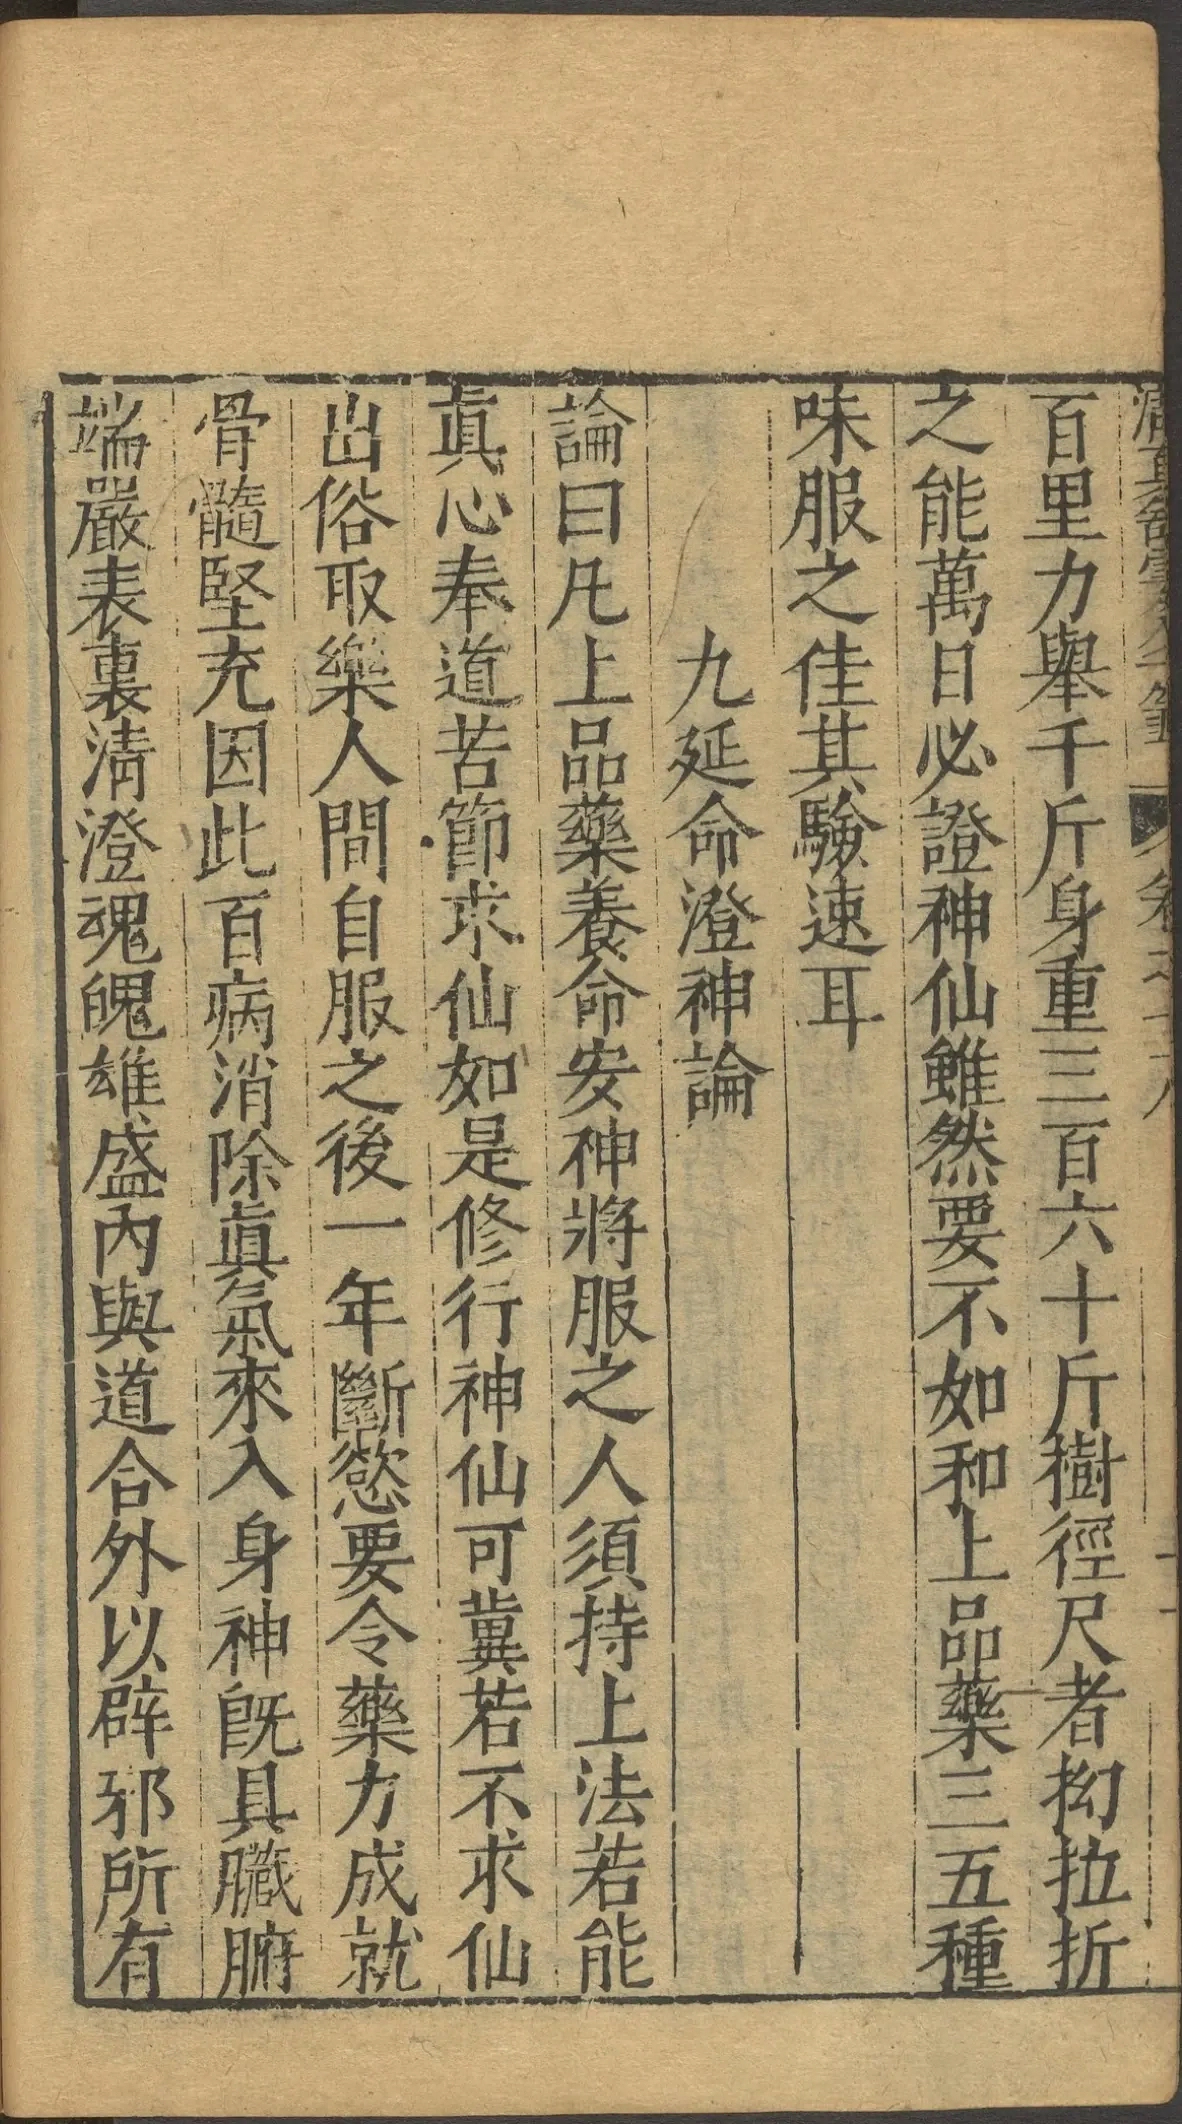 百里力舉千斤身重三百六十斤樹徑尺者拗拉折
之能萬日必證神仙雖然要不如和上品藥三五種
味服之佳其驗速耳
九延命澄神論
論曰凡上品藥養命安神將服之人須持上法若能
眞心奉道苦節求仙如是修行神仙可冀若不求仙
出俗取樂人間自服之後一年斷慾要令藥力成就
骨髓堅充因此百病消除眞氣來入身神旣具臟腑
端嚴表裏淸澄魂魄雄盛內與道合外以辟邪所有